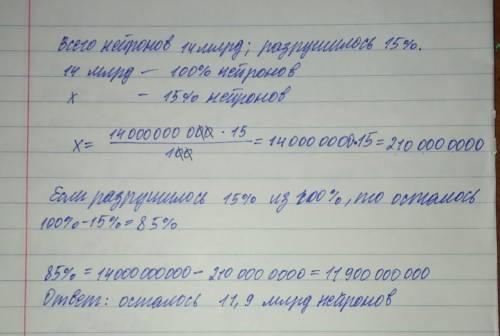 Всего нейронов 14 млрд; разрушилось 15%.
14 млрд — 100% нейронов
х — 15% нейронов
х= 14000000 000 · 15 / 100 = 14000 0000·15 = 210 000 0000
Если разрушилось 15% из 100%, то осталось
100%-15% = 85%
85% = 14000000000 - 210 000 0000 = 11 900 000 000
Ответ: осталось 11,9 млрд нейронов